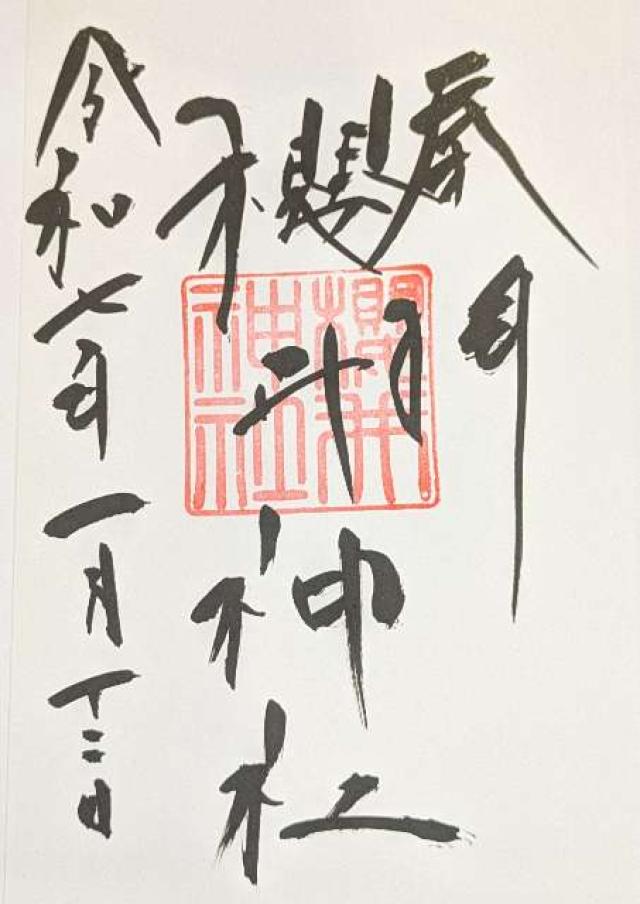 奉拝
櫻井神社
令和七年一月十二日
櫻井
神社